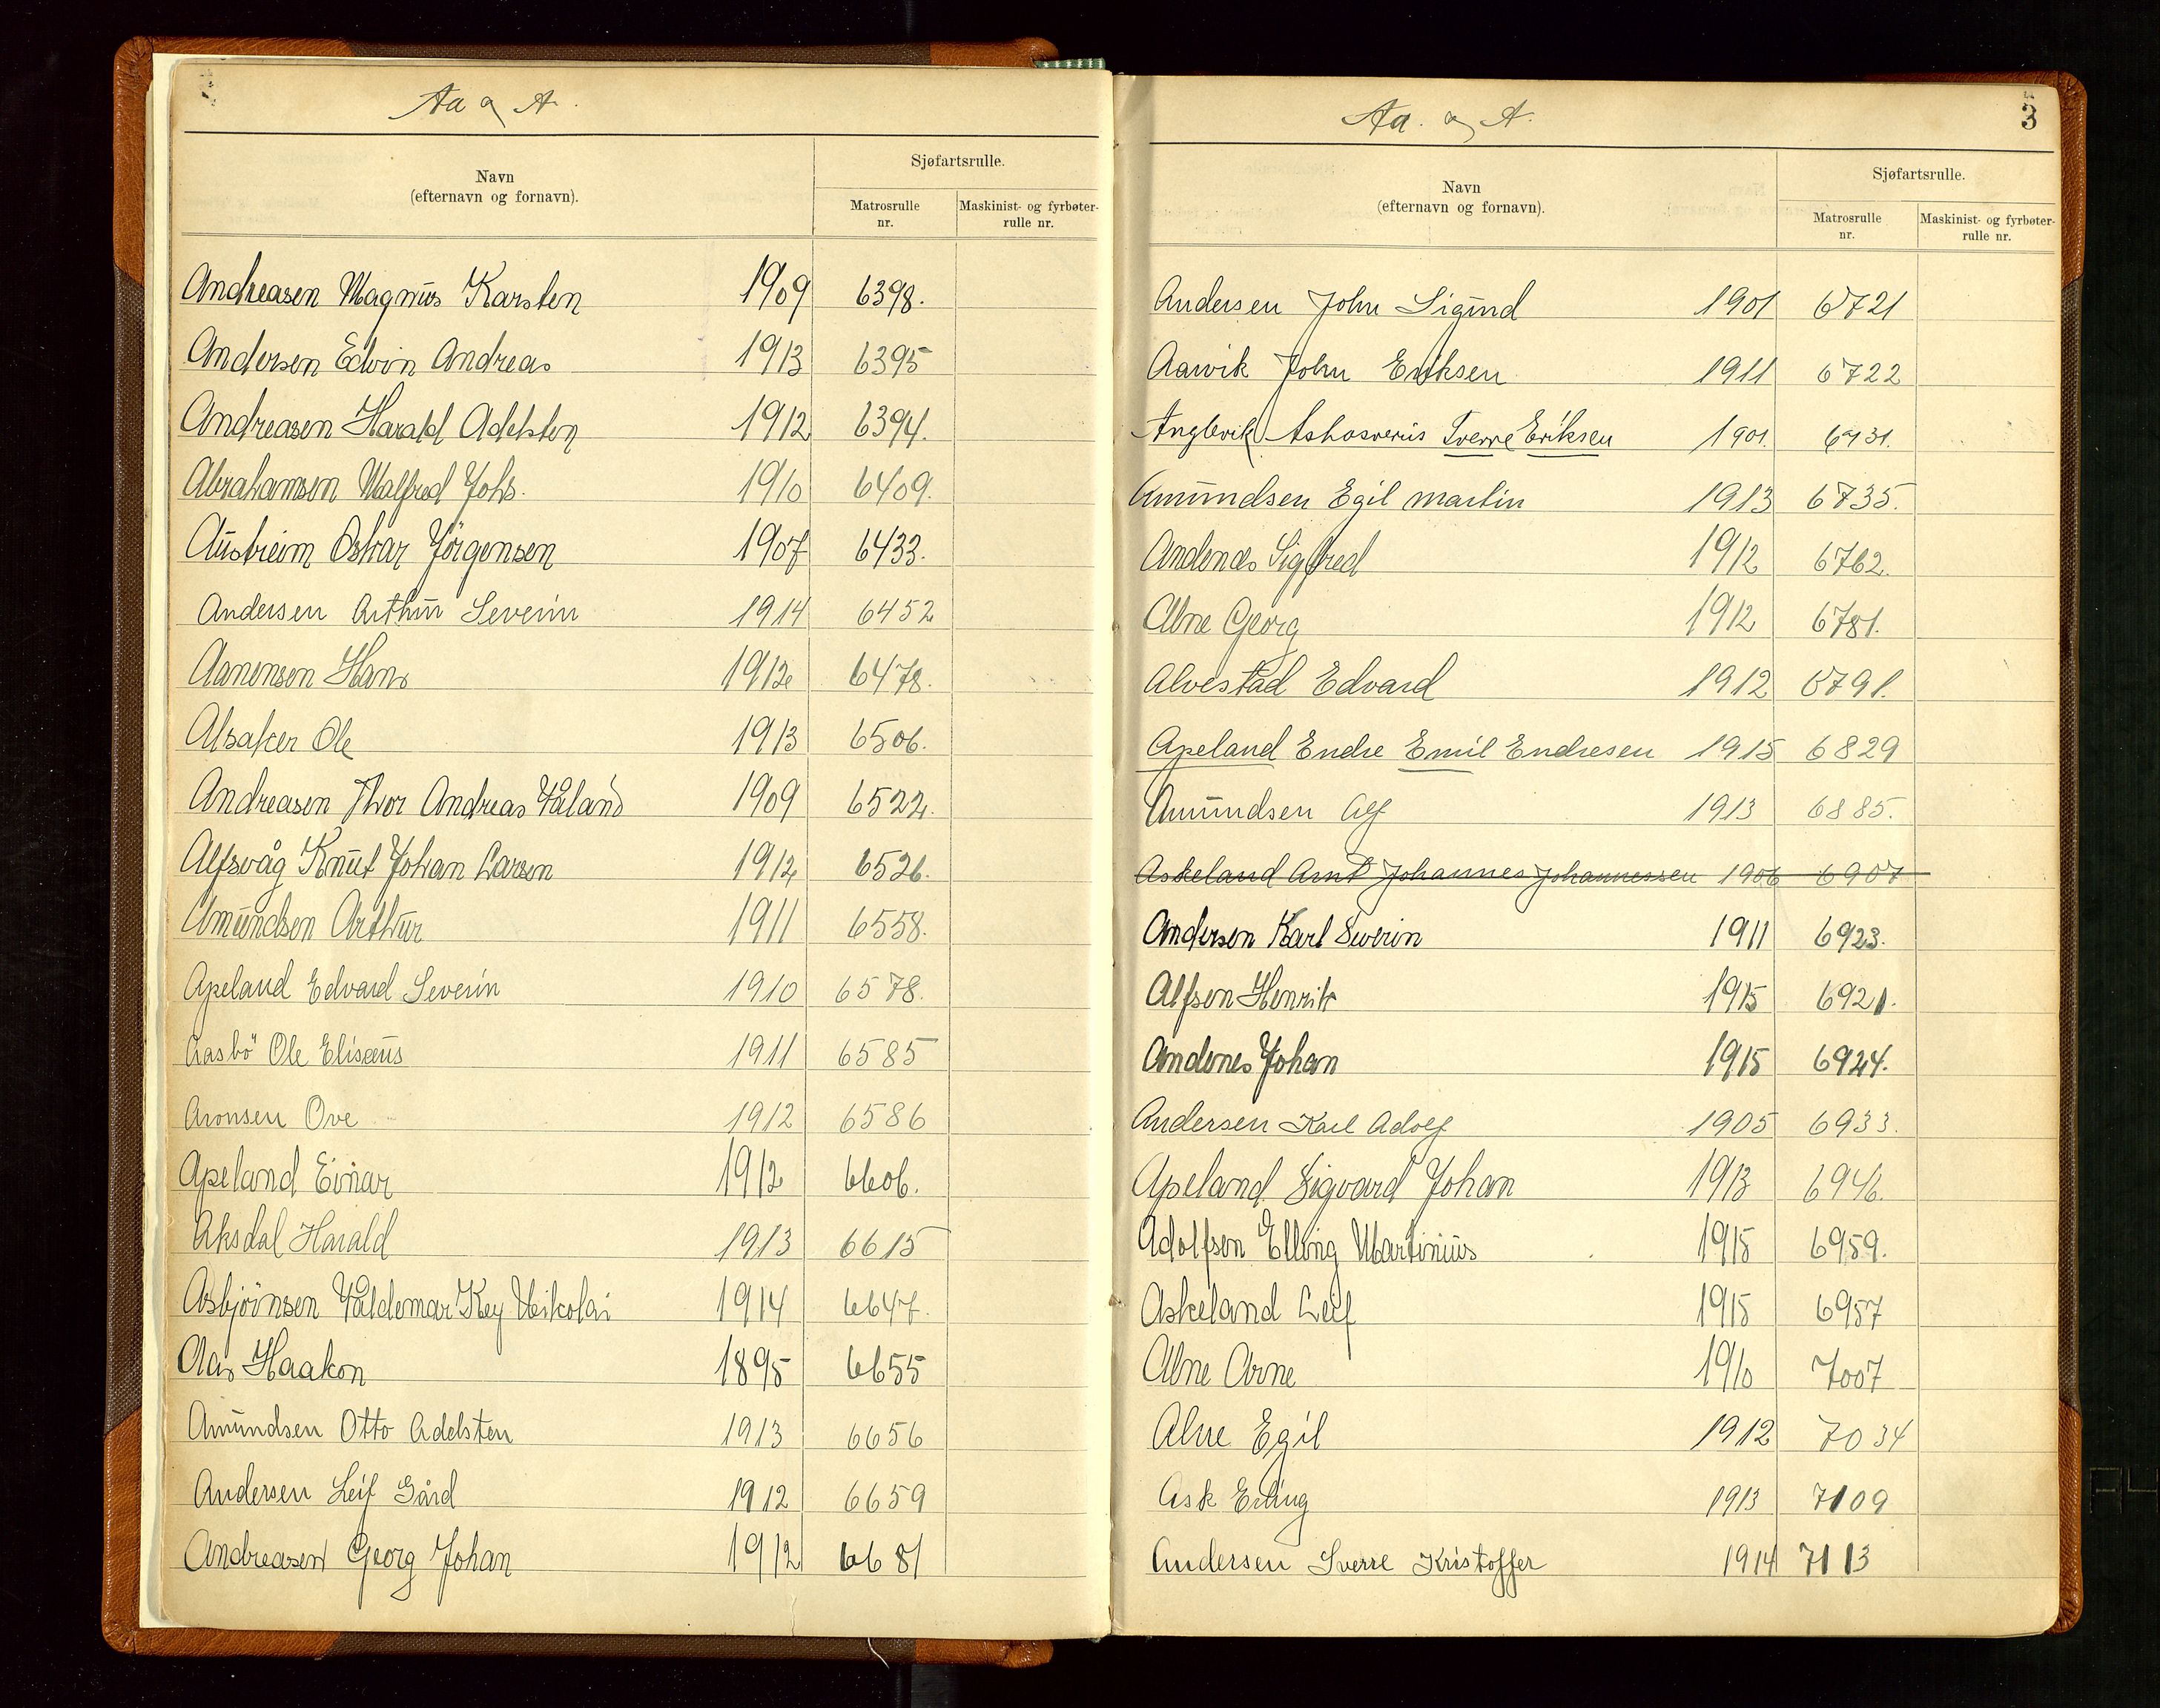 Aa og A.
Navn
(efternavn og fornavn).
Sjøfartsrulle.
Matrosrulle
nr.
Maskinist- og fyrbøter-
rulle nr.
Andreasen Magnus Karsten 1909 6398.
Andersen Edvin Andreas 1913 6395
Andreasen Harald Adelsten 1912 6394.
Abrahamsen Malfred Johs. 1910 6409.
Austreim Oskar Jörgensen 1907 6433.
Andersen Arthur Severin 1914 6452
Aanensen Hans 1912 6478.
Alsaker Ole 1913 6506.
Andreasen Thor Andreas Våland 1909 6522.
Alfsvåg Knut Johan Larsen 1912 6526.
Amundsen Arthur 1911 6558.
Apeland Edvard Severin 1910 6578.
Aasbö Ole Elisæus 1911 6585
Aronsen Ove 1912 6586
Apeland Einar 1912 6606.
Aksdal Harald 1913 6615
Asbjörnsen Valdemar Key Nikolai 1914 6647.
Aas Haakon 1895 6655
Amundsen Otto Adelsten 1913 6656
Andersen Leif Gård 1912 6659
Andreasen Georg Johan 1912 6681
Aa. og A.
3
Navn
(efternavn og fornavn).
Sjøfartsrulle.
Matrosrulle
nr.
Maskinist- og fyrbøter-
rulle nr.
Andersen John Sigund 1901 6721
Aarvik John Eriksen 1911 6722
Anglevik Ashosverus Sverre Eriksen 1901. 6731.
Amundsen Egil Martin 1913 6735.
Andenes Sigfred 1912 6762.
Alne Georg 1912 6781.
Alvestad Edvard 1912 6791.
Apeland Endre Emil Endresen 1915 6829
Amundsen Alf 1913 6885.
Askeland Arnt Johannes Johannessen 1906 6907
Andersen Karl Severin 1911 6923.
Alfsen Henrik 1915 6921.
Andenes Johan 1915 6924.
Andersen Karl Adolf 1905 6933.
Apeland Sigvard Johan 1913 6946.
Adolfsen Elling Martinius 1915 6959.
Askeland Leif 1915 6957
Alne Arne 1910 7007
Alne Egil 1912 7034
Ask Erling 1913 7109
Andersen Sverre Kristoffer 1914 7113